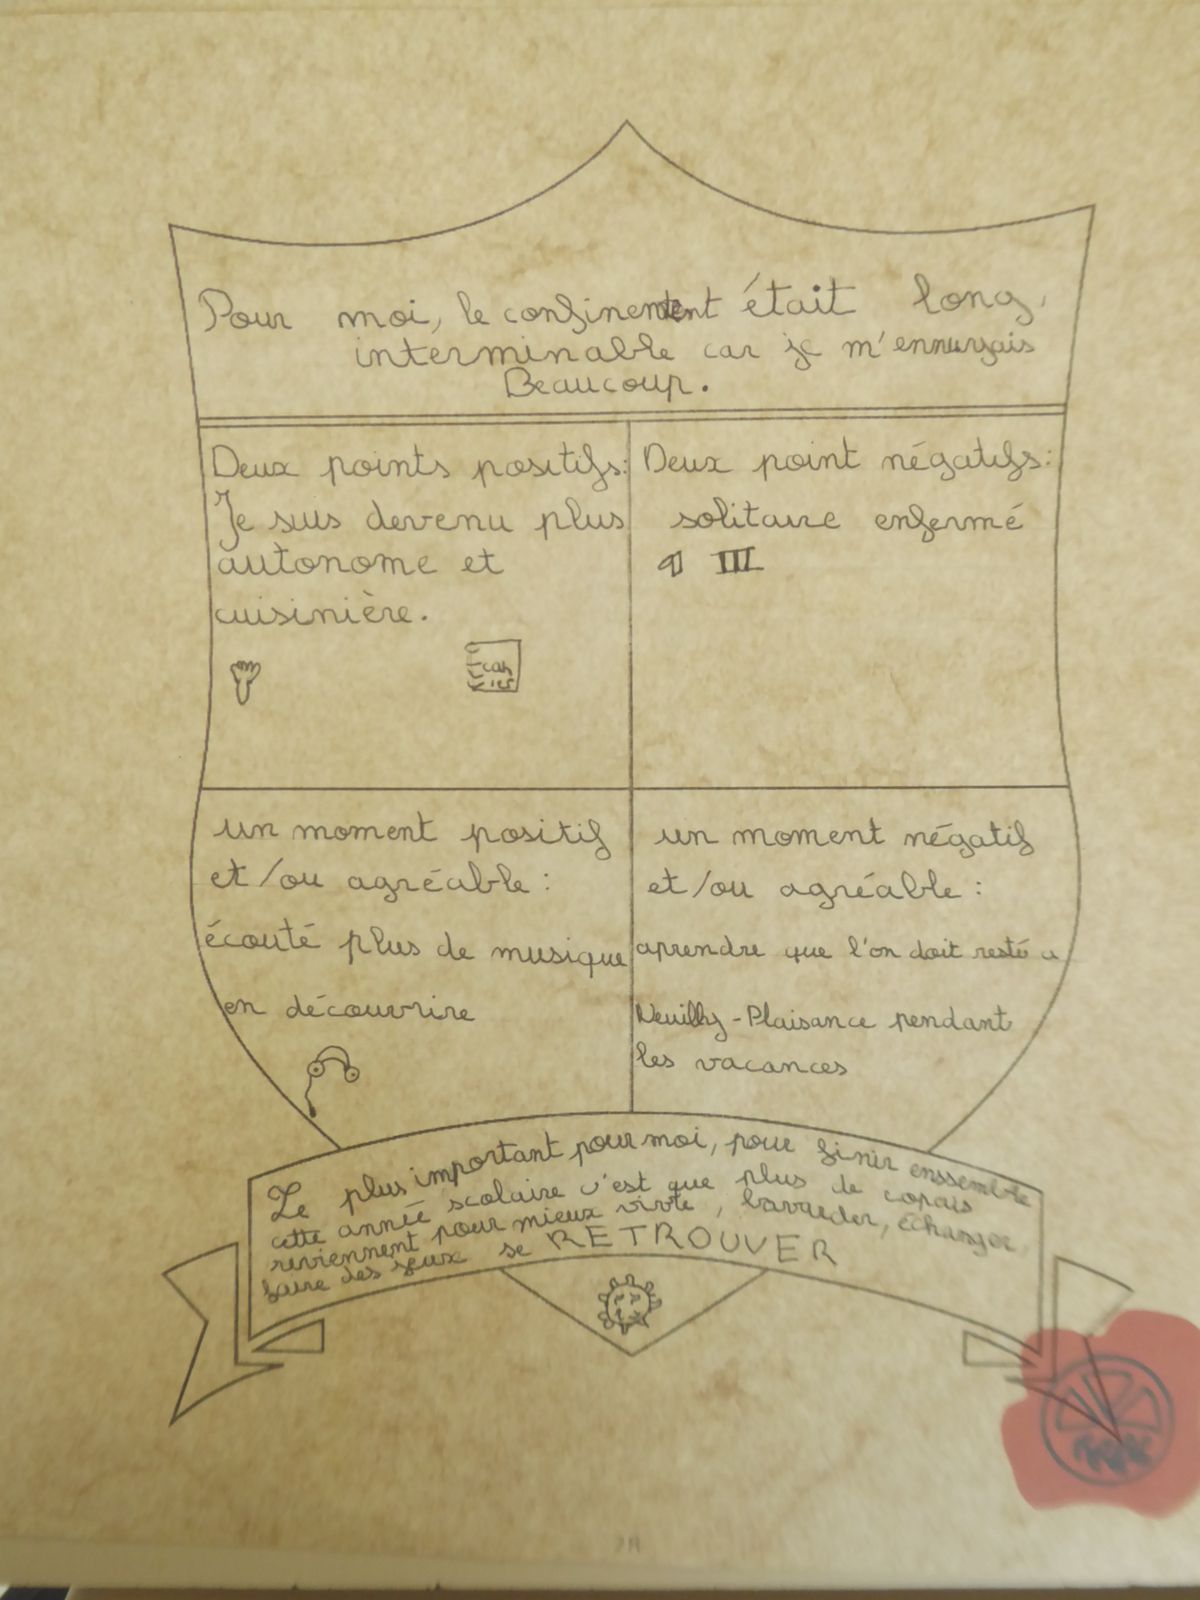 Pour moi, le confinement était long,
interminable car je m'ennuyais
Beaucoup.
Deux points positifs:
Je suis devenu plus
autonome et
cuisinière.
Deux point négatifs:
solitaire enfermé
un moment positif
et/ou agréable :
écouté plus de musique
en découvrire
un moment négatif
et/ou agréable :
aprendre que l'on doit resté a
Neuilly-Plaisance pendant
les vacances
Le plus important pour moi, pour finir enssemble
cette année scolaire c'est que plus de copais
reviennent pour mieux vivre, bavarder, échanger,
faire des jeux se RETROUVER